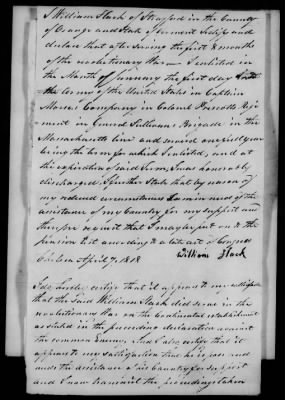 I William Stack of Strafford in the County
of Orange and State of Vermont testify and
declare that after serving the first 8 months
of the revolutionary War I enlisted in
the Month of January the first day
the Army of the United States in Captain
Morse's Company in Colonel Regi-
ment in General Sullivans Brigade in the
Massachusetts line and served one full year
being the term for which I enlisted, and at
the expiration of said term, I was honorably
discharged. I further State that by reason of
my reduced circumstances I am in need of the
assistance of my Country for my support and
therefore request that I may be put on to the
pension list according to a late act of Congress
Chelsea April 7, 1818
William Stack
I do hereby certify that it appears to my satisfaction
that the said William Stack did serve in the
revolutionary War on the Continental establishment
as stated in the preceding declaration against
the common Enemy, and I also certify that it
appears to my satisfaction that he is poor and
needs the assistance of his Country for support
and I now transmit the proceedings taken